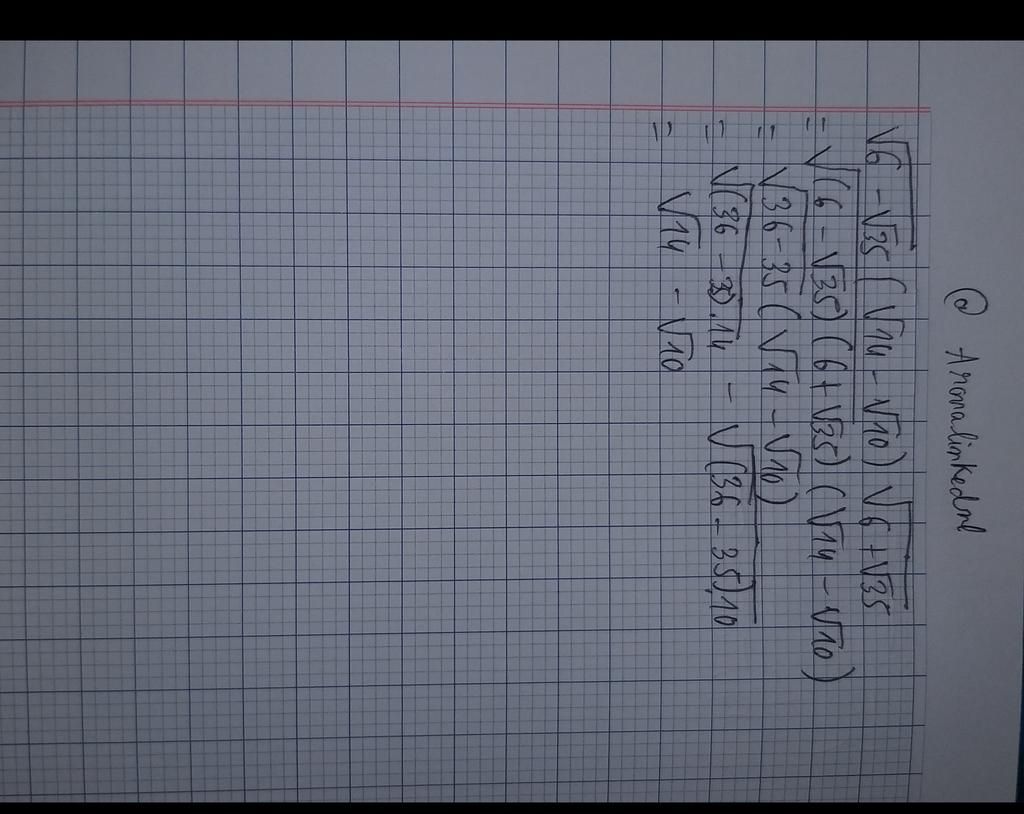 @ Aromalinkednl
√(6 - √35) (√14 - √10) √(6 + √35)
= √((6 - √35) (6 + √35)) (√14 - √10)
= √(36 - 35) (√14 - √10)
= √((36 - 35).14) - √((36 - 35).10)
= √14 - √10